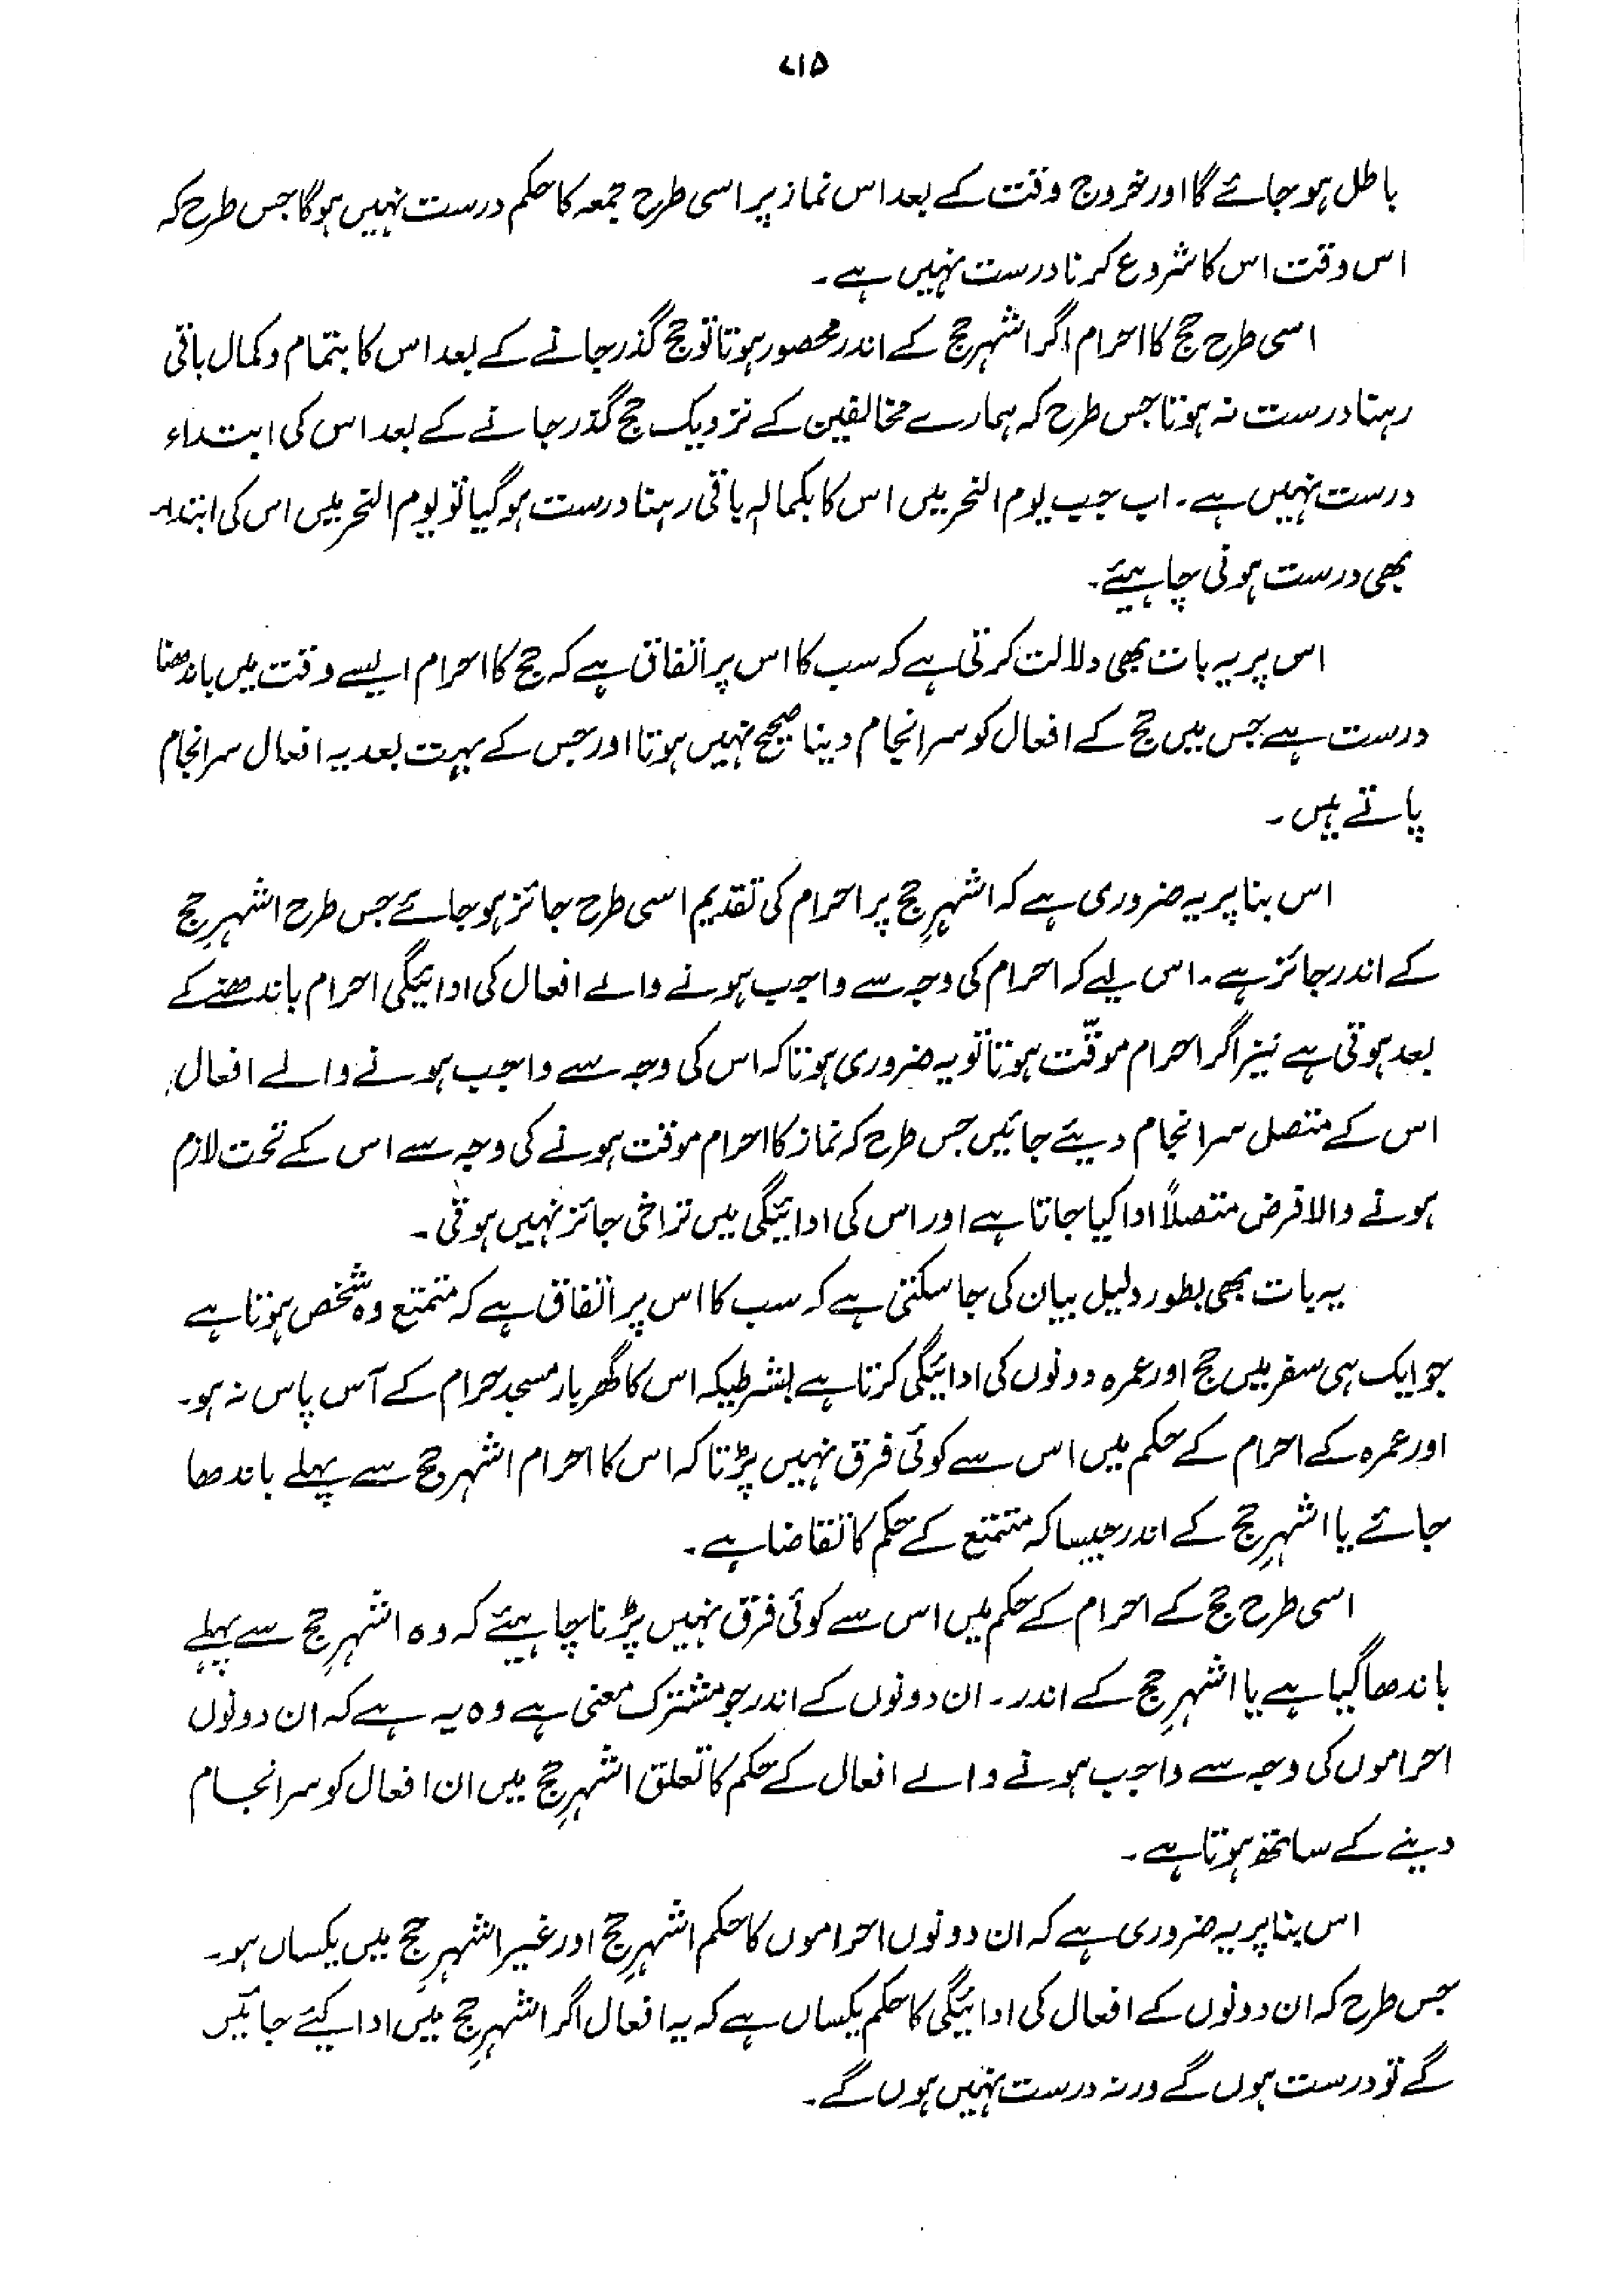 ۷۱۵
باطل ہو جائے گا اور خروج وقت کے بعد اس نماز پر اسی طرح جمعہ کا حکم درست نہیں ہوگا جس طرح کہ
اس وقت اس کا شروع کرنا درست نہیں ہے۔
اسی طرح حج کا احرام اگر اشہر حج کے اندر محصور ہوتا تو حج گذر جانے کے بعد اس کا بتمام و کمال باقی
رہنا درست نہ ہوتا جس طرح کہ ہمارے مخالفین کے نزدیک حج گذر جانے کے بعد اس کی ابتداء
درست نہیں ہے۔ اب جب یوم النحر میں اس کا بکمالہٖ باقی رہنا درست ہو گیا تو یوم النحر میں اس کی ابتداء
بھی درست ہونی چاہیئے۔
اس پر یہ بات بھی دلالت کرتی ہے کہ سب کا اس پر اتفاق ہے کہ حج کا احرام ایسے وقت میں باندھنا
درست ہے جس میں حج کے افعال کو سرانجام دینا صحیح نہیں ہوتا اور جس کے بہت بعد یہ افعال سرانجام
پاتے ہیں۔
اس بنا پر یہ ضروری ہے کہ اشہرِ حج پر احرام کی تقدیم اسی طرح جائز ہو جائے جس طرح اشہرِ حج
کے اندر جائز ہے۔ اس لیے کہ احرام کی وجہ سے واجب ہونے والے افعال کی ادائیگی احرام باندھنے کے
بعد ہوتی ہے نیز اگر احرام موقّت ہوتا تو یہ ضروری ہوتا کہ اس کی وجہ سے واجب ہونے والے افعال
اس کے متصل سرانجام دیئے جائیں جس طرح کہ نماز کا احرام موقت ہونے کی وجہ سے اس کے تحت لازم
ہونے والا فرض متصلاً ادا کیا جاتا ہے اور اس کی ادائیگی میں تراخی جائز نہیں ہوتی۔
یہ بات بھی بطور دلیل بیان کی جا سکتی ہے کہ سب کا اس پر اتفاق ہے کہ متمتع وہ شخص ہوتا ہے
جو ایک ہی سفر میں حج اور عمرہ دونوں کی ادائیگی کرتا ہے بشرطیکہ اس کا گھر بار مسجد حرام کے آس پاس نہ ہو۔
اور عمرہ کے احرام کے حکم میں اس سے کوئی فرق نہیں پڑتا کہ اس کا احرام اشہر حج سے پہلے باندھا
جائے یا اشہرِ حج کے اندر جیسا کہ متمتع کے حکم کا تقاضا ہے۔
اسی طرح حج کے احرام کے حکم میں اس سے کوئی فرق نہیں پڑنا چاہیئے کہ وہ اشہرِ حج سے پہلے
باندھا گیا ہے یا اشہرِ حج کے اندر۔ ان دونوں کے اندر جو مشترک معنی ہے وہ یہ ہے کہ ان دونوں
احراموں کی وجہ سے واجب ہونے والے افعال کے حکم کا تعلق اشہرِ حج میں ان افعال کو سرانجام
دینے کے ساتھ ہوتا ہے۔
اس بنا پر یہ ضروری ہے کہ ان دونوں احراموں کا حکم اشہرِ حج اور غیر اشہرِ حج میں یکساں ہو۔
جس طرح کہ ان دونوں کے افعال کی ادائیگی کا حکم یکساں ہے کہ یہ افعال اگر اشہرِ حج میں ادا کیئے جائیں
گے تو درست ہوں گے ورنہ درست نہیں ہوں گے۔